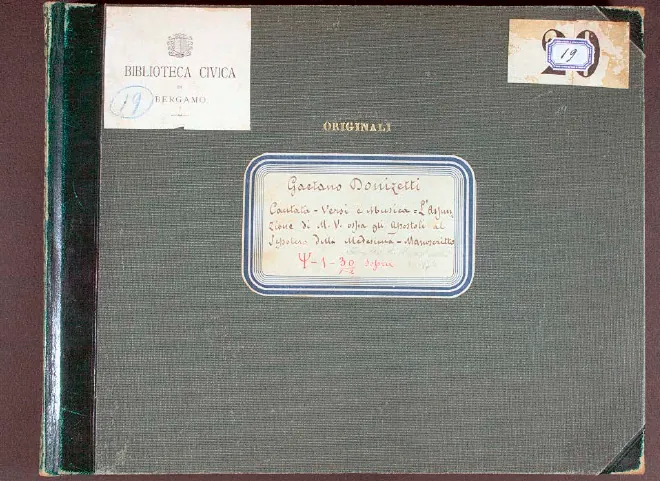 BIBLIOTECA CIVICA
DI
BERGAMO
19
20
19
ORIGINALI
Gaetano Donizetti
Cantata - Versi e Musica = L'Assun
zione di M. V. ossia gli Apostoli al
Sepolcro della Medesima - Manoscritto
Ψ-1-30 sopra